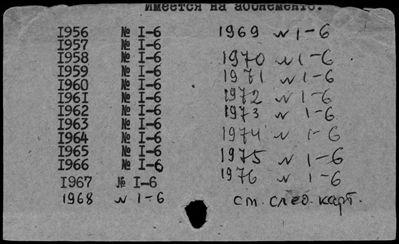 Имеется на абонементе.
1956 № I-6
1957 № I-6
1958 № I-6
1959 № I-6
1960 № I-6
1961 № I-6
1962 № I-6
1963 № I-6
1964 № I-6
1965 № I-6
1966 № I-6
1967 № I-6
1968 № 1-6
1969 № 1-6
1970 № 1-6
1971 № 1-6
1972 № 1-6
1973 № 1-6
1974 № 1-6
1975 № 1-6
1976 № 1-6
см. след. карт.